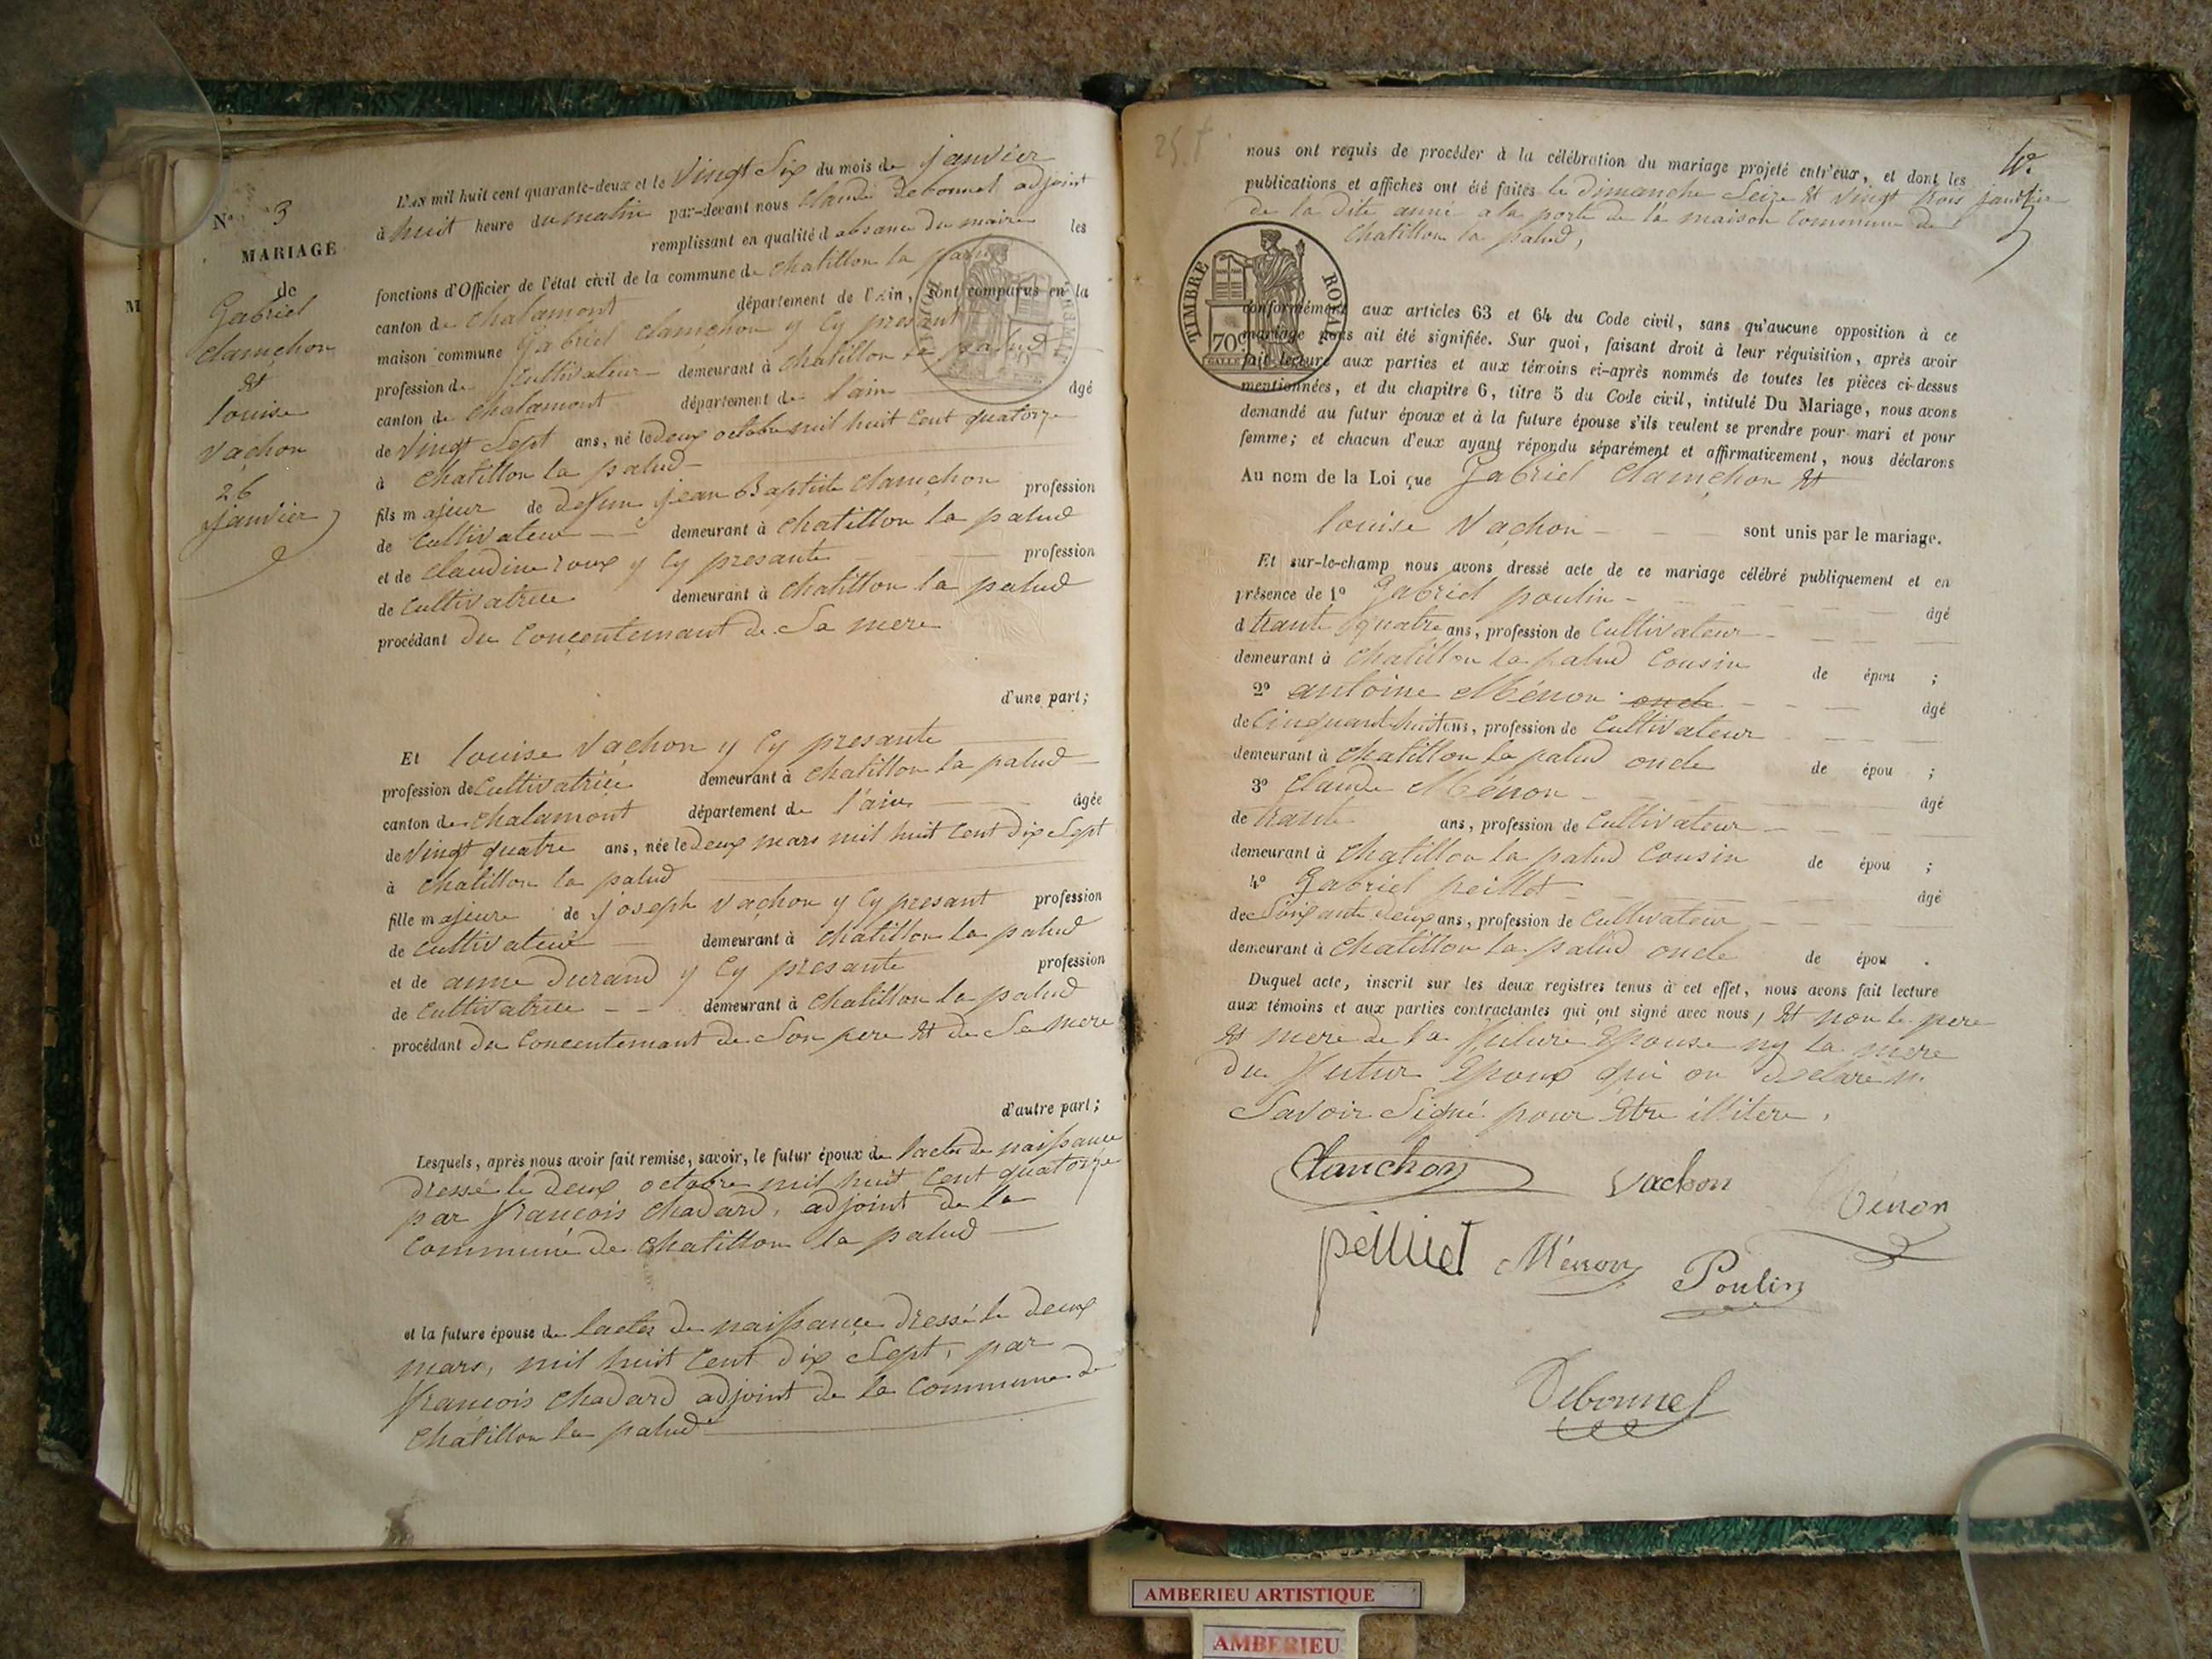 N° 3
MARIAGE
de
Gabriel
Clamchon
&
louise
vachon
26
janvier
L'AN mil huit cent quarante-deux et le vingt Six du mois de janvier
à huit heure du matin par-devant nous Claude debonnel adjoint
remplissant en qualité d absance du maire les
fonctions d'Officier de l'état civil de la commune de chatillon la palud
canton de chalamont département de l'Ain, sont comparus en la
maison commune Gabriel Clamchon y Cy presant
profession de Cultivateur demeurant à chatillon la palud
canton de chalamont département de l'ain âgé
de vingt Sept ans, né le deux octobre mil huit Cent quatorze
à chatillon la palud
fils majeur de defun jean Baptiste Clamchon profession
de Cultivateur demeurant à chatillon la palud
et de Claudine roux y Cy presante profession
de Cultivatrice demeurant à chatillon la palud
procédant du Concentemant de Sa mere
d'une part;
Et louise vachon y Cy presante
profession de Cultivatrice demeurant à chatillon la palud
canton de chalamont département de l'ain âgée
de vingt quatre ans, née le deux mars mil huit Cent dix Sept
à chatillon la palud
fille majeure de joseph vachon y Cy presant profession
de Cultivateur demeurant à chatillon la palud
et de anne durand y Cy presante profession
de Cultivatrice demeurant à chatillon la palud
procédant du Concentemant de Son pere & de Sa mere
d'autre part;
Lesquels, après nous avoir fait remise, savoir, le futur époux de lacte de naissance
dressé le deux octobre mil huit Cent quatorze
par françois chadard, adjoint de la
Commune de chatillon la palud
et la future épouse de lacte de naissance dressé le deux
mars, mil huit Cent dix Sept, par
françois chadard adjoint de la Commune de
chatillon la palud
nous ont requis de procéder à la célébration du mariage projeté entr'eux, et dont les
publications et affiches ont été faites le dimanche Seize & vingt trois janvier
de la dite anné a la porte de la maison Commune de
chatillon la palud,
TIMBRE ROYAL
70c
conformément aux articles 63 et 64 du Code civil, sans qu'aucune opposition à ce
mariage nous ait été signifiée. Sur quoi, faisant droit à leur réquisition, après avoir
fait lecture aux parties et aux témoins ci-après nommés de toutes les pièces ci-dessus
mentionnées, et du chapitre 6, titre 5 du Code civil, intitulé Du Mariage, nous avons
demandé au futur époux et à la future épouse s'ils veulent se prendre pour mari et pour
femme; et chacun d'eux ayant répondu séparément et affirmativement, nous déclarons
Au nom de la Loi que Gabriel Clamchon &
louise vachon sont unis par le mariage.
Et sur-le-champ nous avons dressé acte de ce mariage célébré publiquement et en
présence de 1° Gabriel poulin âgé
d trante quatre ans, profession de Cultivateur
demeurant à chatillon la palud Cousin de épou ;
2° antoine Ménon oncle âgé
de Cinquant huit ans, profession de Cultivateur
demeurant à chatillon la palud oncle de épou ;
3° Claude Ménon âgé
de trante ans, profession de Cultivateur
demeurant à chatillon la palud Cousin de épou ;
4° Gabriel peillet âgé
de Soixante deux ans, profession de Cultivateur
demeurant à chatillon la palud oncle de épou .
Duquel acte, inscrit sur les deux registres tenus à cet effet, nous avons fait lecture
aux témoins et aux parties contractantes qui ont signé avec nous, & non le pere
& mere de la future Epouse ny la mere
du futur Epoux qui on declaré ne
Savoir Signé pour Etre illitere,
Clanchon vachon Ménon
pelliet Ménon Poulin
Debonnel
AMBERIEU ARTISTIQUE
AMBERIEU